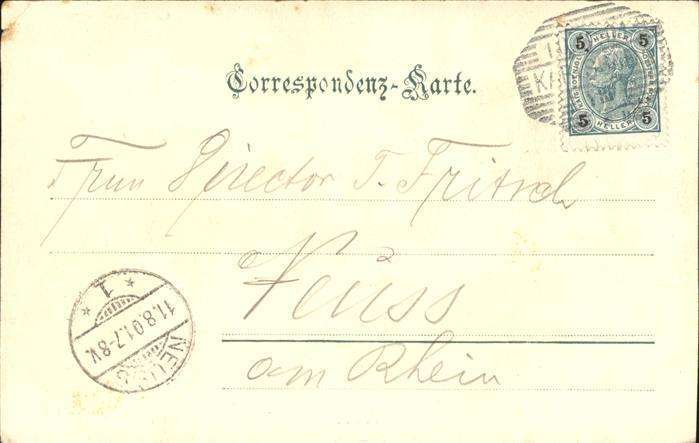 Correspondenz-Karte.
5 HELLER 5
5 HELLER 5
Frau Director T. Fritsch
Neuss
am Rhein
1
11.8.01.7-8V.
NEUSS